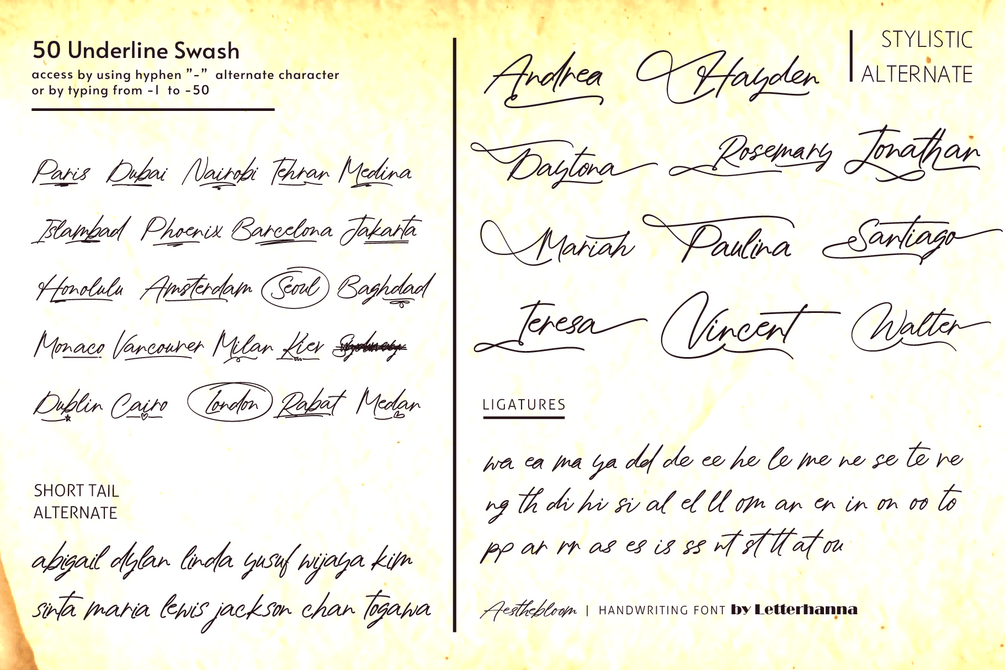 50 Underline Swash
access by using hyphen "-" alternate character
or by typing from -1 to -50
Paris Dubai Nairobi Tehran Medina
Islambad Phoenix Barcelona Jakarta
Honolulu Amsterdam Seoul Baghdad
Monaco Vancouver Milan Kiev
Dublin Cairo London Rabat Medan
SHORT TAIL
ALTERNATE
abigail dylan linda yusuf wijaya kim
sinta maria lewis jackson chan togawa
STYLISTIC
ALTERNATE
Andrea Hayden
Daytona Rosemary Jonathan
Mariah Paulina Santiago
Teresa Vincent Walter
LIGATURES
wa ea ma ya dd de ee he le me ne se te re
ng th di hi si al el ll om an en in on oo to
pp ar rr as es is ss nt st tt at ou
Aesthebloom | HANDWRITING FONT by Letterhanna